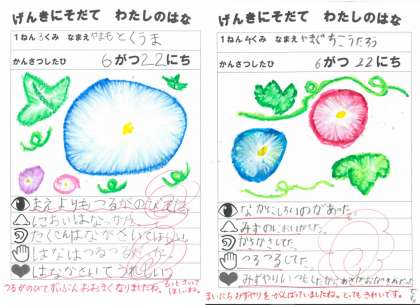 げんきにそだて わたしのはな
1ねん3くみ なまえ やまもとくうま
かんさつしたひ 6がつ22にち
まえよりもつるがのびてた。
においはなかった。
たくさんはながさいてほしい。
はなはつるつる
はながさいてうれしい。
つるがのびて ずいぶん おおきくなりましたね。
げんきにそだて わたしのはな
1ねん4くみ なまえ やまぐちこうたろう
かんさつしたひ 6がつ22にち
なかにしろいのがあった。
みずのにおいがした。
かさかさした。
つるつるした。
みずやり
まいにち みずやりを がんばっていましたね。とても きれいです。